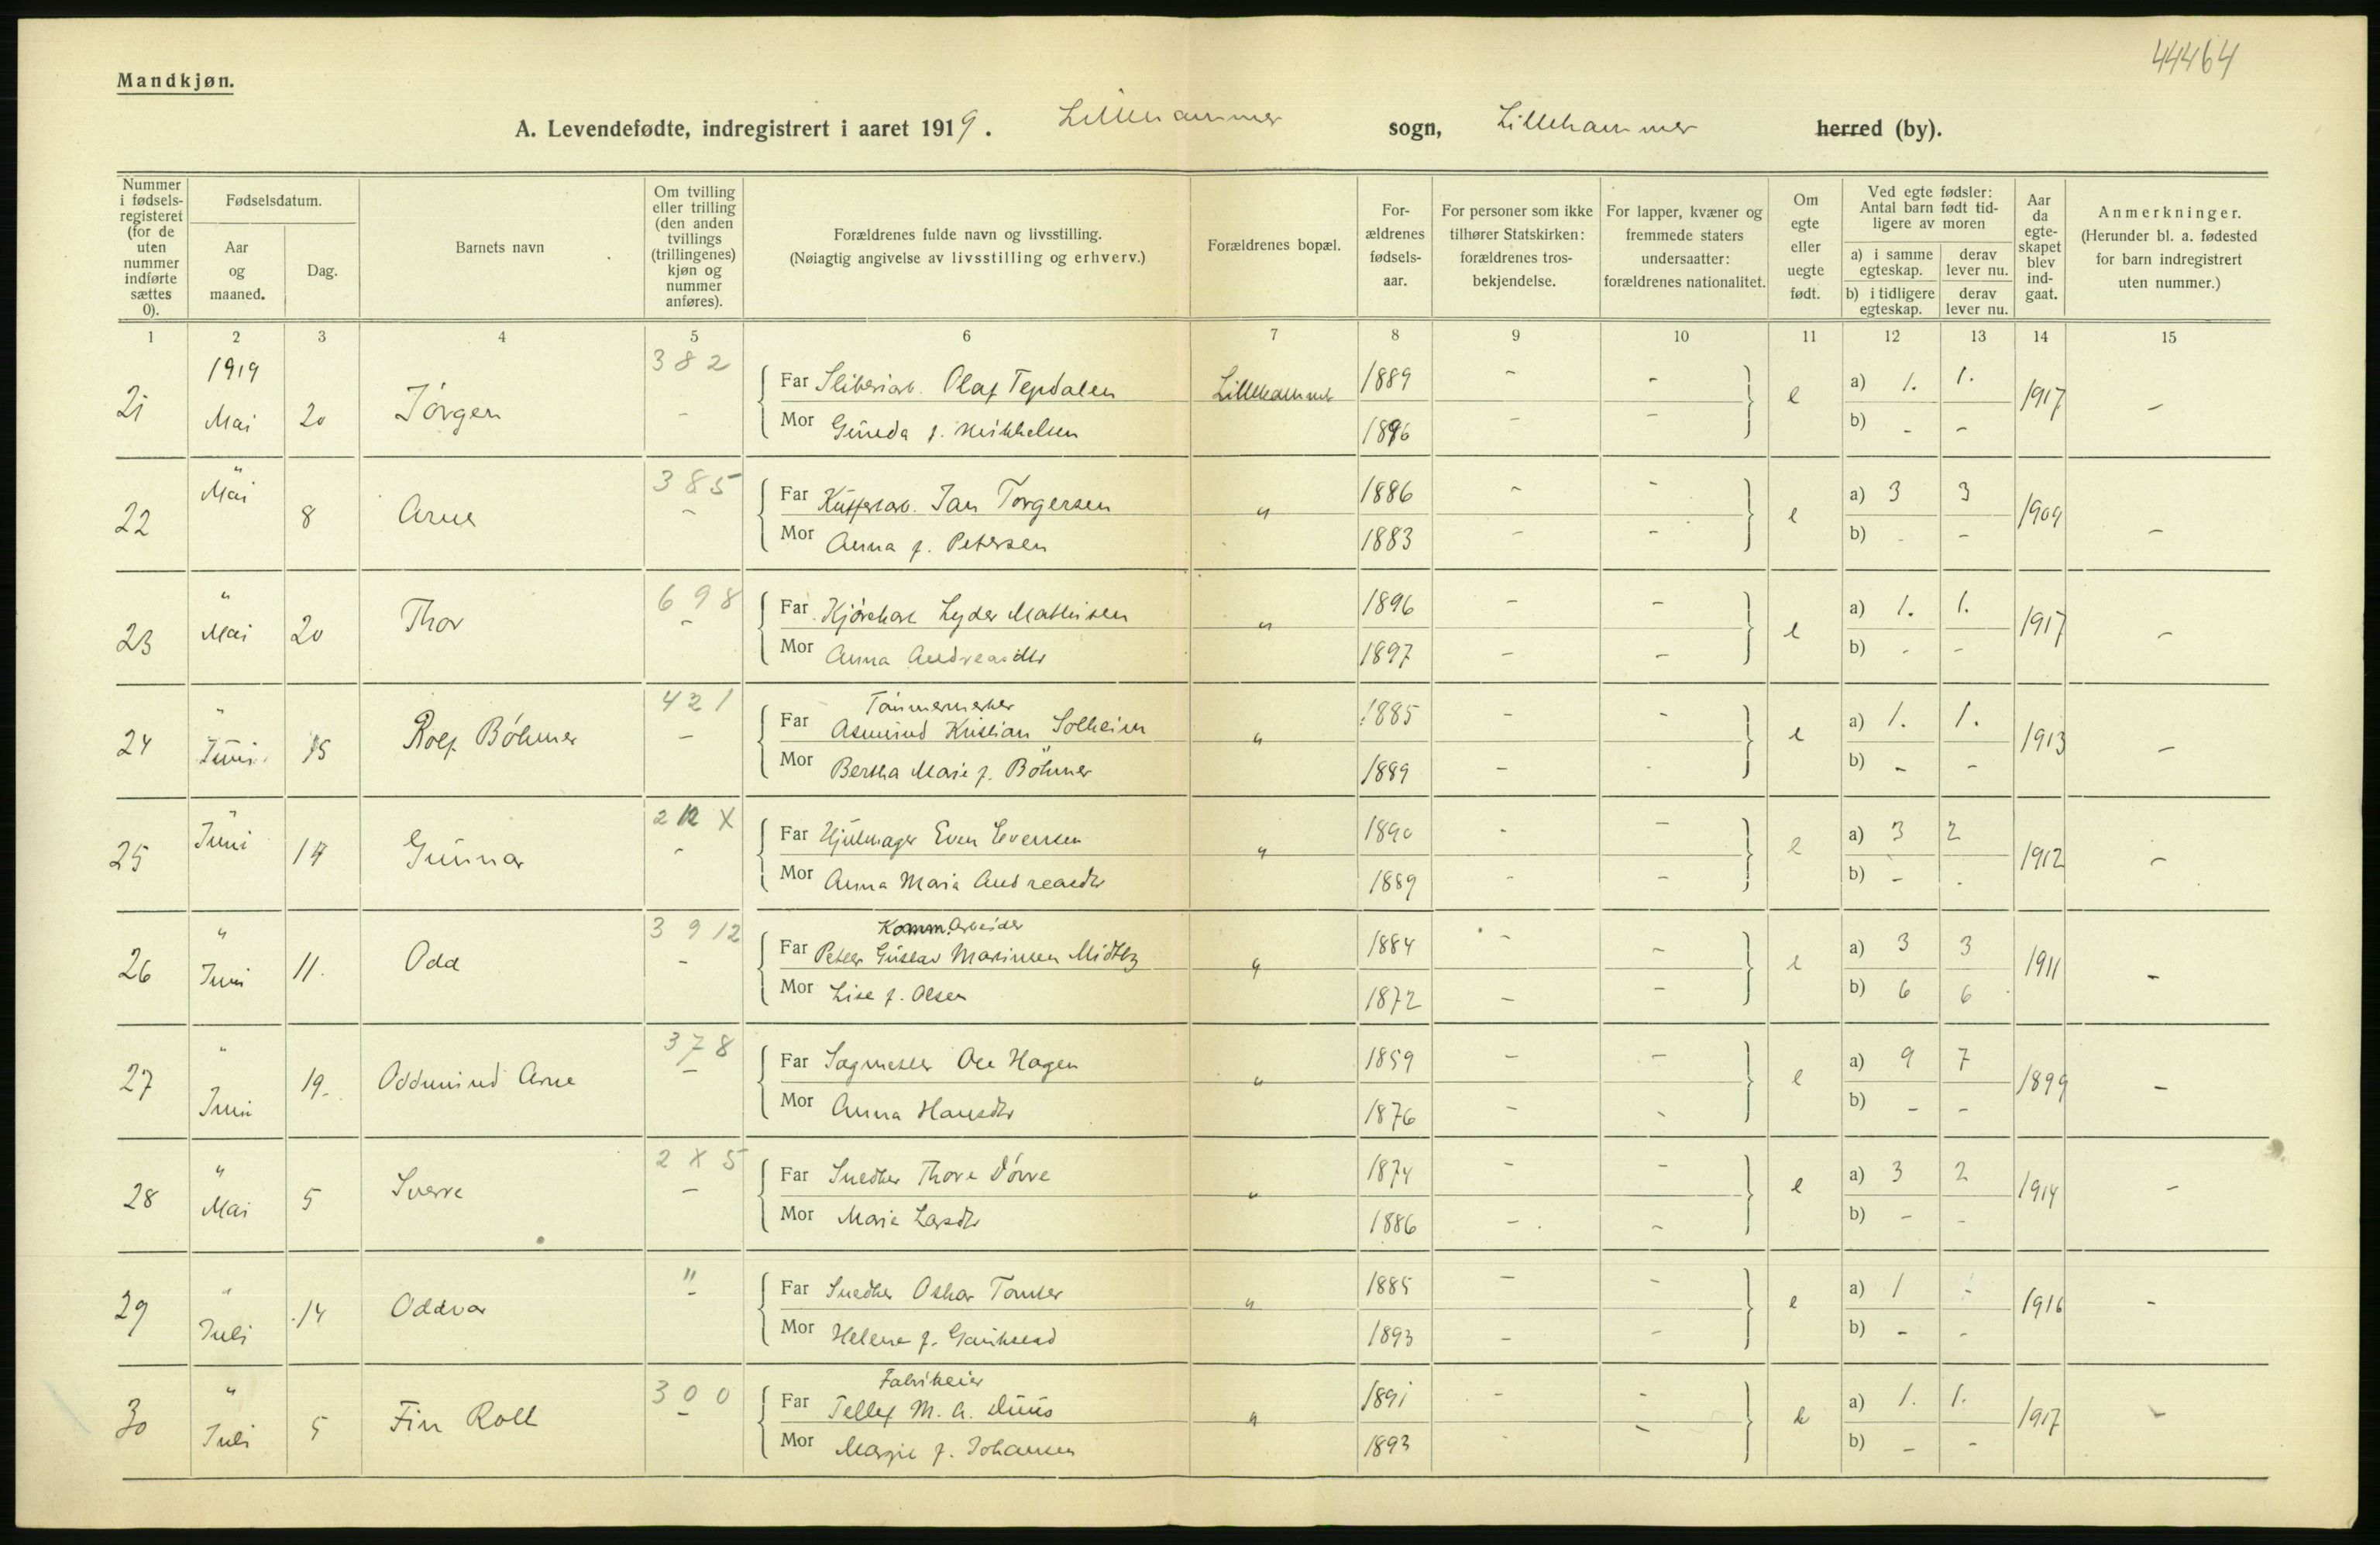 44464
Mandkjøn.
A. Levendefødte, indregistrert i aaret 1919. Lillehammer sogn, Lillehammer herred (by).
Nummer i fødselsregisteret (for de uten nummer indførte sættes 0).
Fødselsdatum.
Aar og maaned.
Dag.
Barnets navn
Om tvilling eller trilling (den anden tvillings (trillingenes) kjøn og nummer anføres).
Forældrenes fulde navn og livsstilling.
(Nøiagtig angivelse av livsstilling og erhverv.)
Forældrenes bopæl.
Forældrenes fødselsaar.
For personer som ikke tilhører Statskirken: forældrenes trosbekjendelse.
For lapper, kvæner og fremmede staters undersaatter: forældrenes nationalitet.
Om egte eller uegte født.
Ved egte fødsler: Antal barn født tidligere av moren
a) i samme egteskap.
derav lever nu.
b) i tidligere egteskap.
derav lever nu.
Aar da egteskapet blev indgaat.
Anmerkninger.
(Herunder bl. a. fødested for barn indregistrert uten nummer.)
1 2 3 4 5 6 7 8 9 10 11 12 13 14 15
1919 382
21 Mai 20 Jörgen - Far Sliberiarb. Olaf Lillehammer 1889 - - e a) 1. 1. 1917 -
Mor f. Mikkelsen 1896 - - b) - -
" 385
22 Mai 8 Arne - Far Jan Torgersen " 1886 - - e a) 3 3 1909 -
Mor Anna f. Petersen 1883 - - b) - -
" 698
23 Mai 20 Thor - Far Lyder Mathisen " 1896 - - e a) 1. 1. 1917 -
Mor Anna Andreasdtr 1897 - - b) - -
" 421 Tömmermerker
24 Juni 15 Rolf Böhmer - Far Asmund Kristian Solheim " 1885 - - e a) 1. 1. 1913 -
Mor Bertha Marie f. Böhmer 1889 - - b) - -
" 212 X
25 Juni 17 Gunnar - Far Hjulmager Even Evensen " 1890 - - e a) 3 2 1912 -
Mor Anna Maria Andreasdtr 1889 - - b) - -
" 3 9 12 Komm. Arbeider
26 Juni 11. Odd - Far Peter Gustav Marinsen Midtby " 1884 - - e a) 3 3 1911 -
Mor Lise f. Olsen 1872 - - b) 6 6
" 378
27 Juni 19. Oddmund Arne - Far Sagmester Ole Hagen " 1859 - - e a) 9 7 1899 -
Mor Anna Hansdtr 1876 - - b) - -
" 2 X 5
28 Mai 5 Sverre - Far Snedker Thore Dörre " 1874 - - e a) 3 2 1914 -
Mor Marie Larsdtr 1886 - - b) - -
" "
29 Juli 14 Oddvar - Far Snedker Oskar Tomter " 1885 - - e a) 1 - 1916 -
Mor Helene f. 1893 - - b) - -
" 300 Fabrikeier
30 Juli 5 Fin Roll - Far Tellef M. A. Duus " 1891 - - e a) 1. 1. 1917 -
Mor Margie f. Johansen 1893 - - b) - -